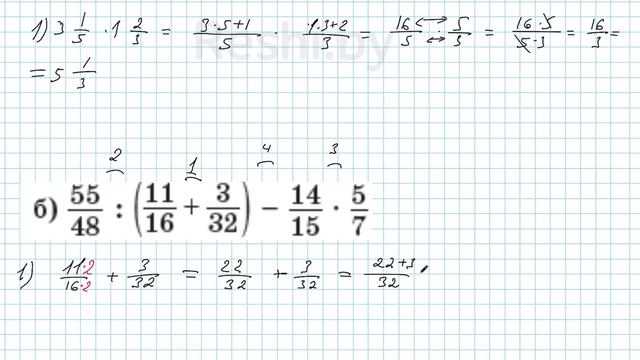 1) 3 1/5 · 1 2/3 = (3·5+1)/5 · (1·3+2)/3 = 16/5 · 5/3 = (16·5)/(5·3) = 16/3 =
Reshi.by
= 5 1/3
2 1 4 3
б) 55/48 : (11/16 + 3/32) − 14/15 · 5/7
1) (11·2)/(16·2) + 3/32 = 22/32 + 3/32 = (22+3)/32